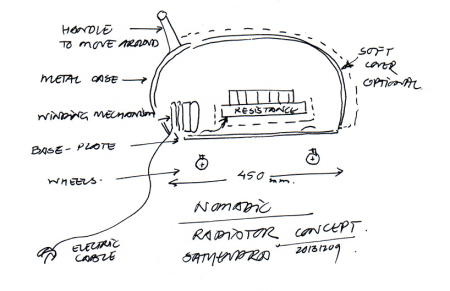 HANDLE
TO MOVE AROUND
METAL CASE
SOFT
COVER
OPTIONAL
WINDING MECHANISM
RESISTANCE
BASE-PLATE
WHEELS
450 mm.
NOMADIC
RADIATOR CONCEPT.
SATHENDRA 20131209
ELECTRIC
CABLE